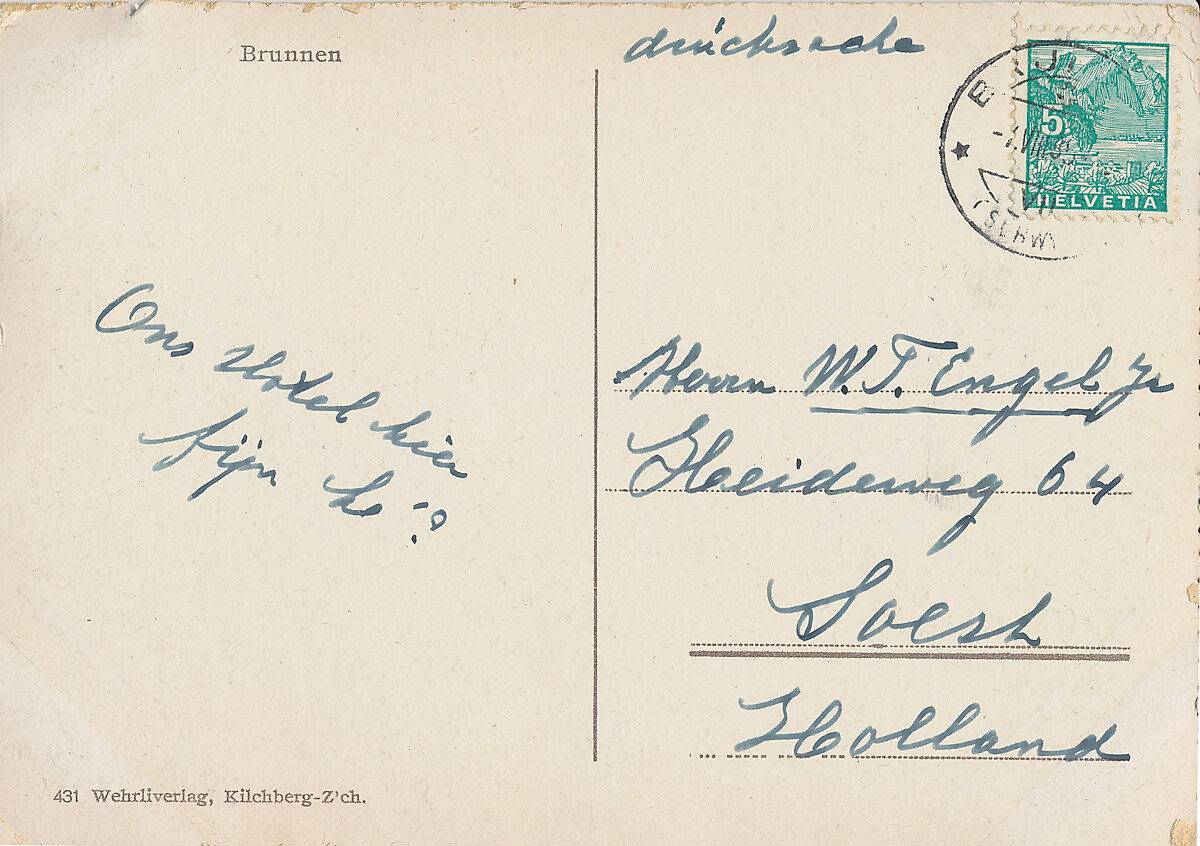 Brunnen
drucksache
5
HELVETIA
Ons Hotel hier
fijn hè?
Herrn W.T. Engel Jr
Heideweg 64
Soest
Holland
431 Wehrliverlag, Kilchberg-Z'ch.